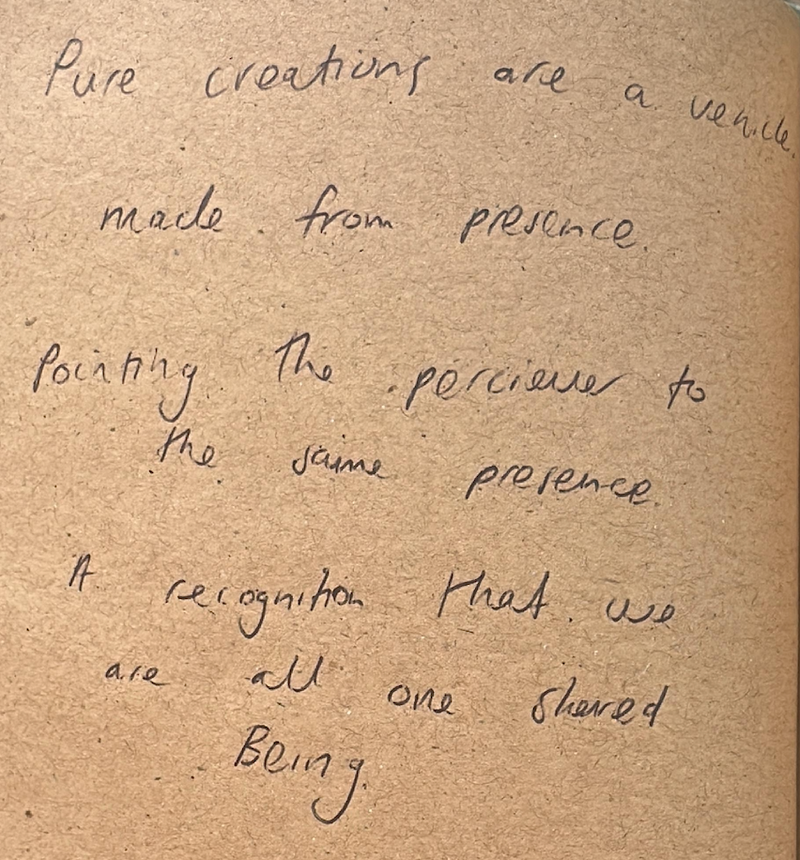 Pure creations are a vehicle.
made from presence.
Pointing the perciever to
the same presence.
A recognition that we
are all one shared
Being.